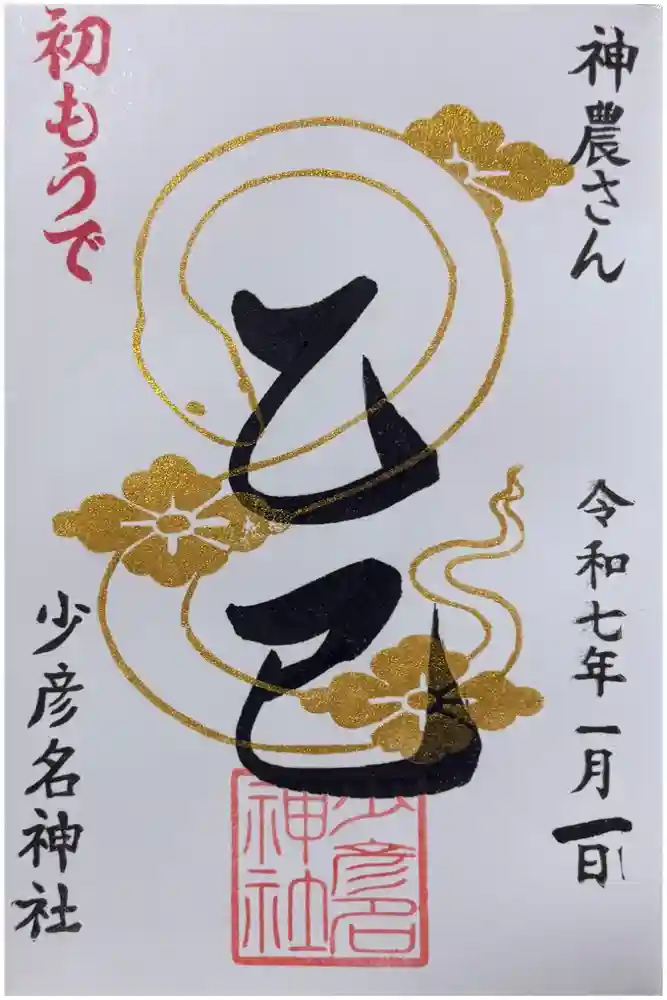 神農さん
令和七年一月一日
乙巳
少彦名神社
初もうで
少彦名
神社